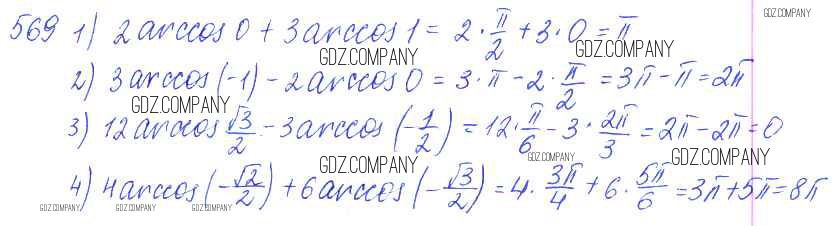 GDZ.COMPANY
569 1) 2arccos 0 + 3arccos 1 = 2 · π/2 + 3 · 0 = π
GDZ.COMPANY GDZ.COMPANY
2) 3arccos (-1) - 2arccos 0 = 3 · π - 2 · π/2 = 3π - π = 2π
GDZ.COMPANY
3) 12arccos √3/2 - 3arccos (-1/2) = 12 · π/6 - 3 · 2π/3 = 2π - 2π = 0
GDZ.COMPANY GDZ.COMPANY GDZ.COMPANY
4) 4arccos (-√2/2) + 6arccos (-√3/2) = 4 · 3π/4 + 6 · 5π/6 = 3π + 5π = 8π
GDZ.COMPANY GDZ.COMPANY GDZ.COMPANY